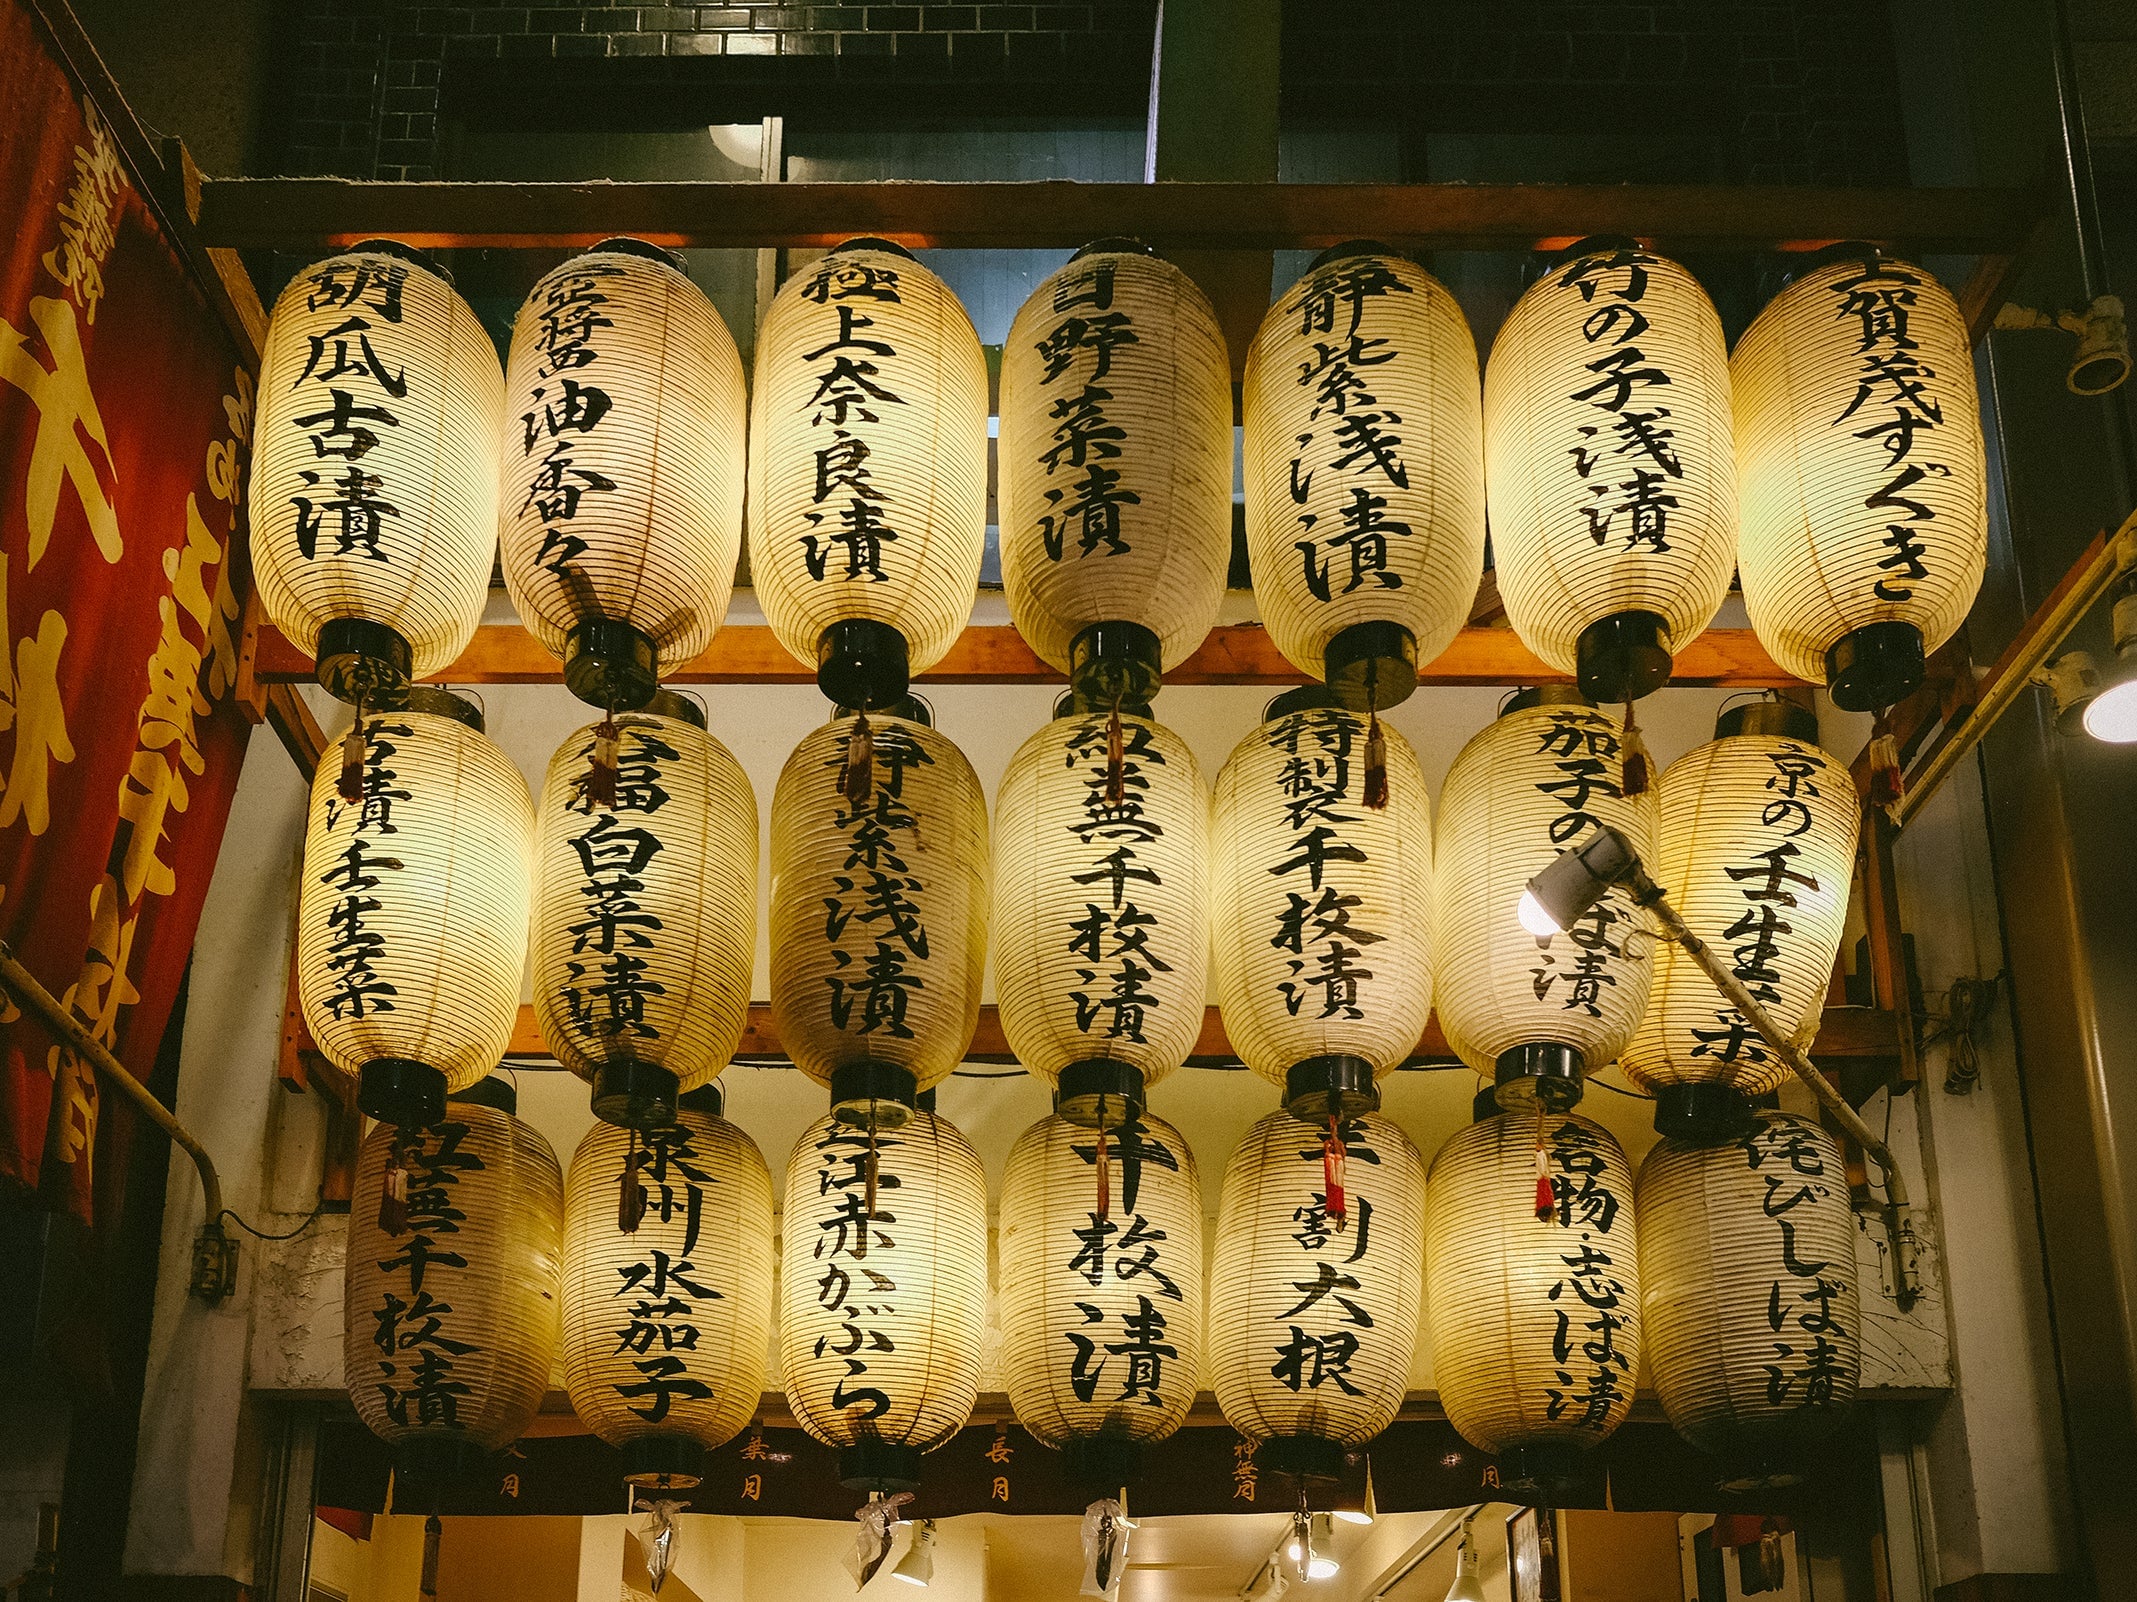 胡瓜古漬
醤油香々
極上奈良漬
日野菜漬
静紫浅漬
竹の子浅漬
上賀茂すぐき
古漬壬生菜
福白菜漬
静紫浅漬
紅蕪千枚漬
特製千枚漬
茄子のば漬
京の壬生菜
紅蕪千枚漬
泉州水茄子
近江赤かぶら
千枚漬
割大根
名物・志ば漬
侘びしば漬
月
葉月
長月
神無月
月